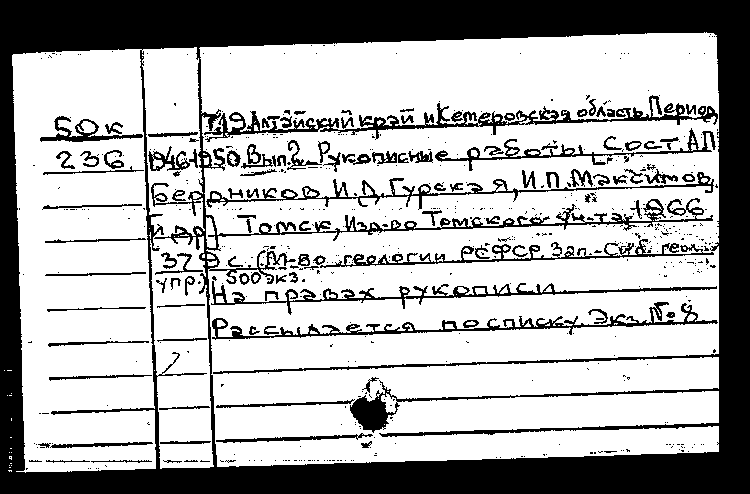 50к Т.19. Алтайский край и Кемеровская область. Период
236 1946-1950. Вып.2. Рукописные работы. Сост. А.П.
Бердников, И.Д. Гурская, И.П. Максимов
[и др]. Томск, Изд-во Томского ун-та, 1966.
379 с. (М-во геологии РСФСР. Зап.-Сиб. геол.
упр.). 500 экз.
На правах рукописи
Рассылается по списку. Экз. № 8